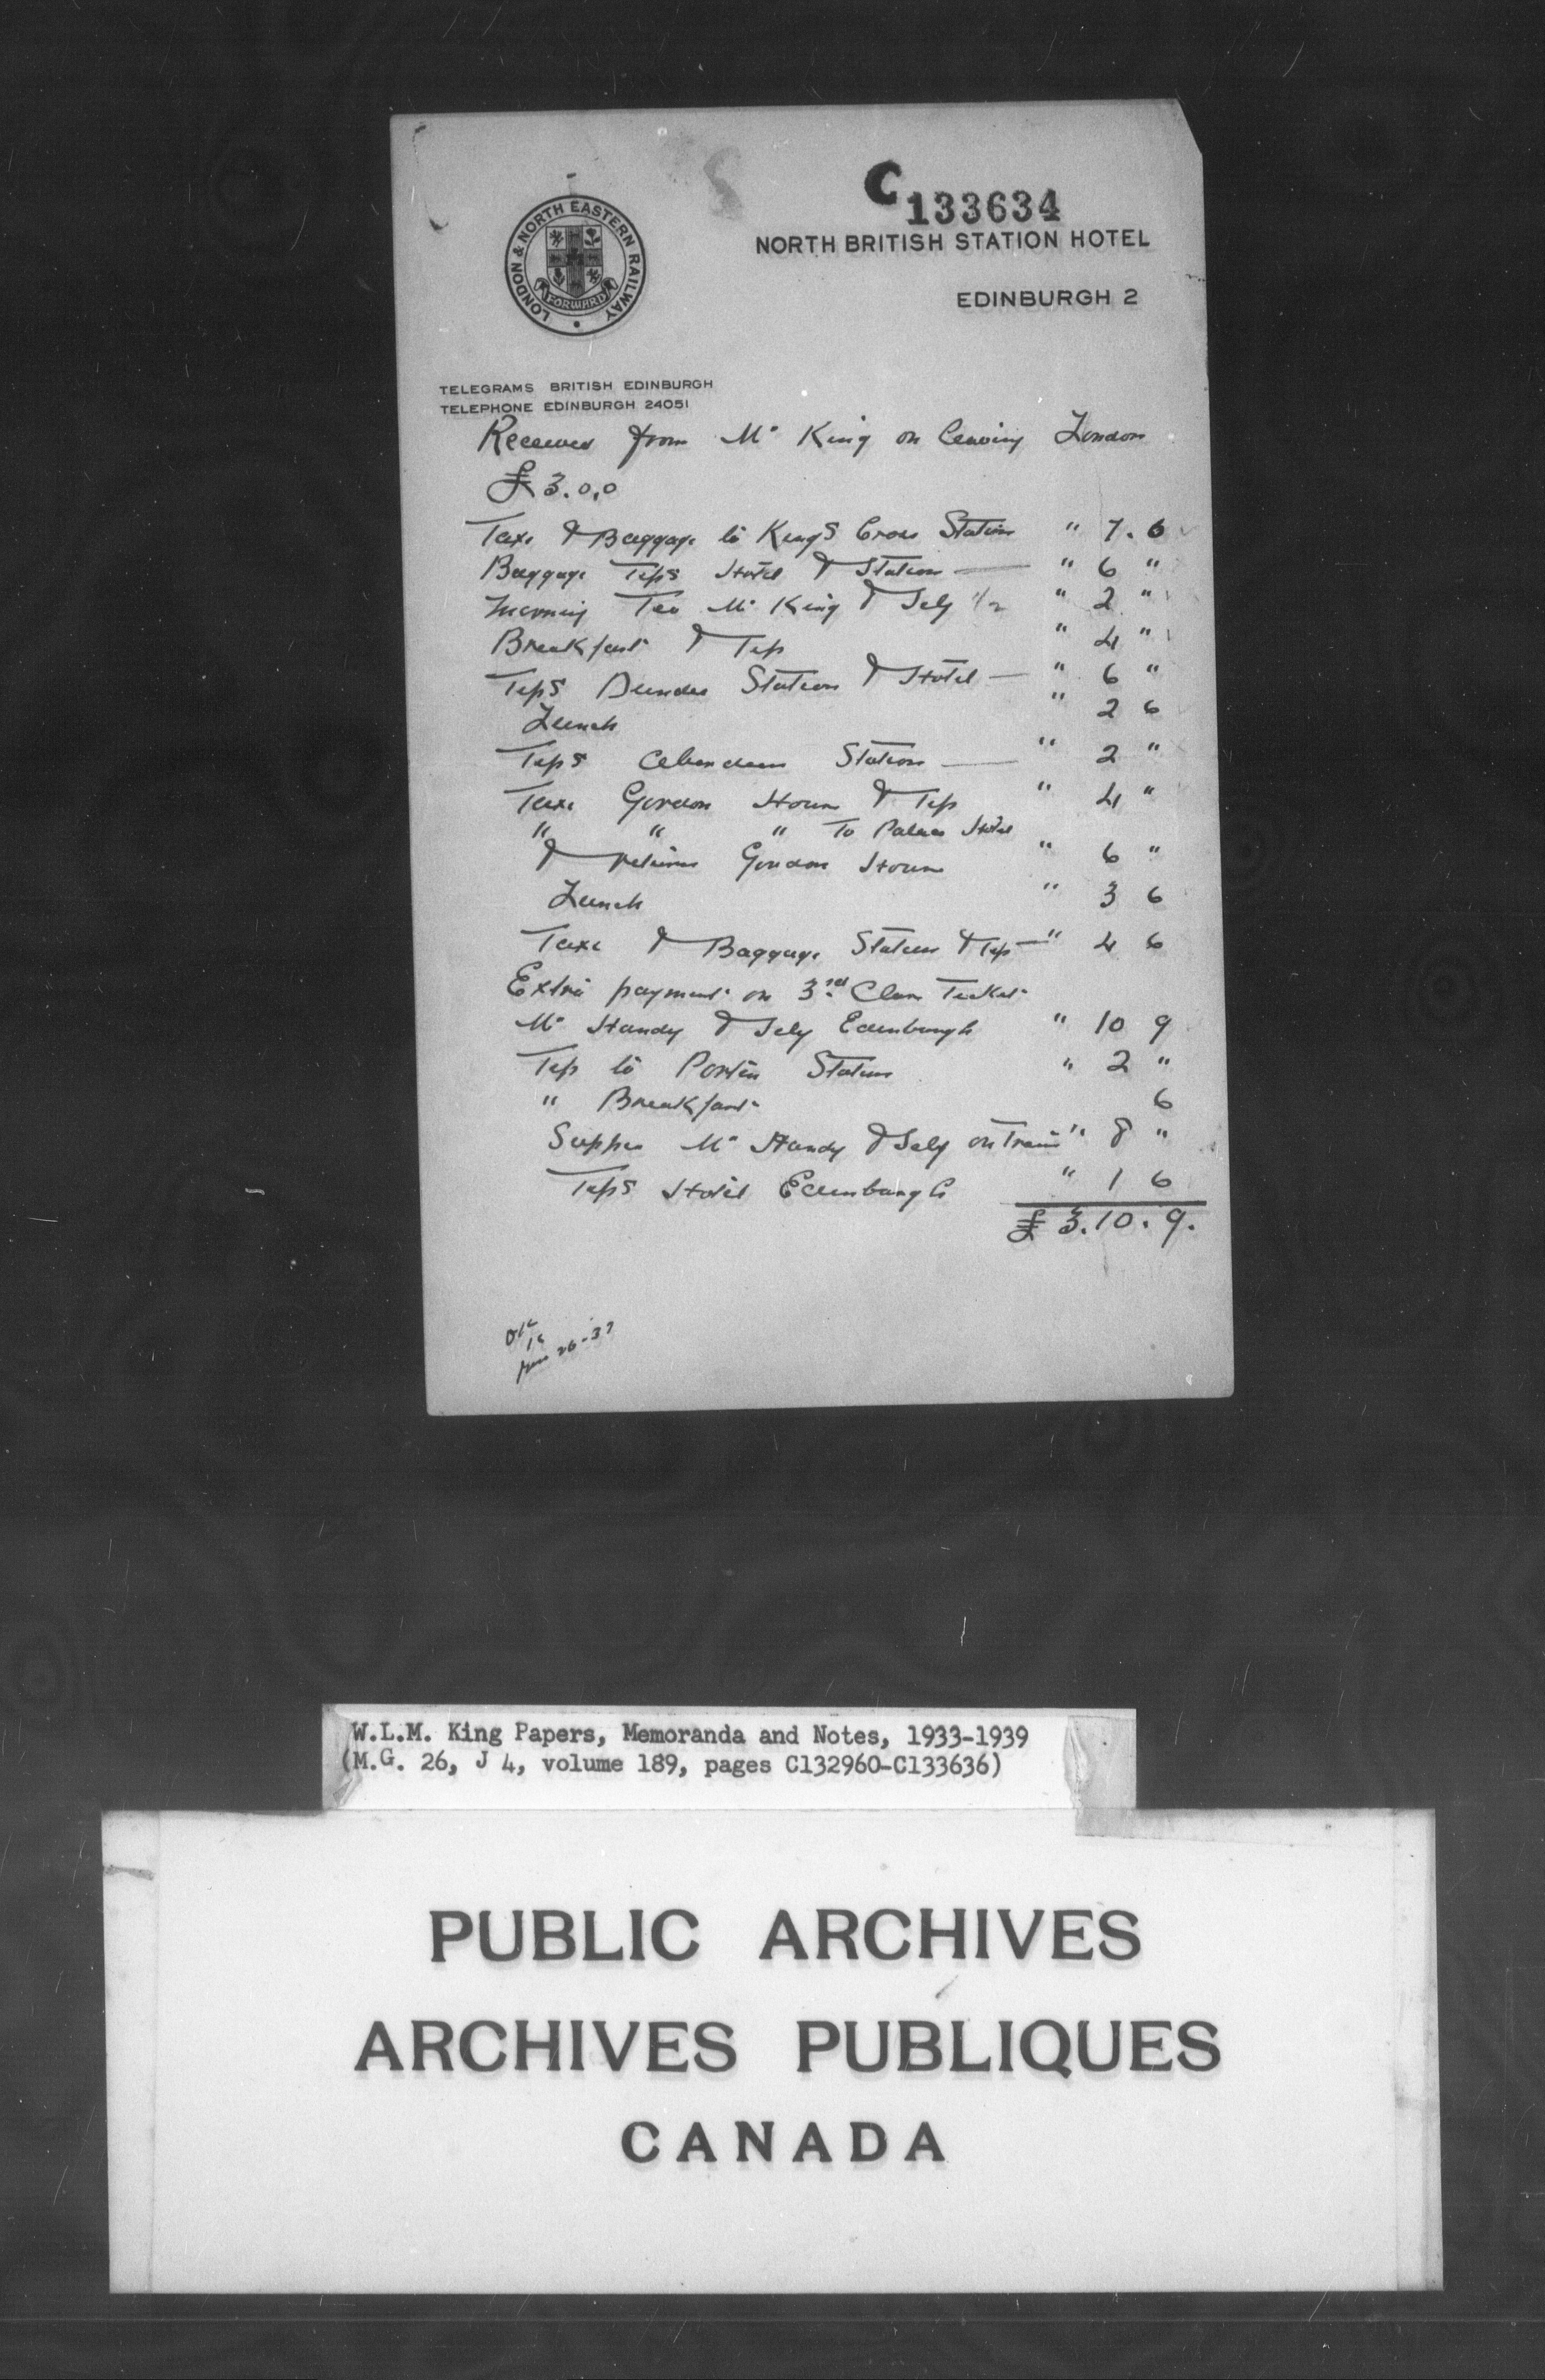 C 133634
LONDON & NORTH EASTERN RAILWAY
FORWARD
NORTH BRITISH STATION HOTEL
EDINBURGH 2
TELEGRAMS BRITISH EDINBURGH
TELEPHONE EDINBURGH 24051
Received from Mr King on leaving London
£3.0.0
Taxi & Baggage to Kings Cross Station " 7.6
Baggage Tips Hotel & Station — " 6 "
Morning Tea Mr King & Self 1/2 " 2 "
Breakfast & Tip " 4 "
Tips Dundee Station & Hotel — " 6 "
Lunch " 2 6
Tips Aberdeen Station — " 2 "
Taxi Gordon House & Tip " 4 "
" " " To Palace Hotel
& return Gordon House " 6 "
Lunch " 3 6
Taxi & Baggage Station & Tip — " 4 6
Extra payment on 3rd Class Ticket
Mr Handy & Self Edinburgh " 10 9
Tip to Porter Station " 2 "
" Breakfast 6
Supper Mr Handy & Self on Train " 8 "
Tips Hotel Edinburgh " 1 6
£ 3.10.9.
26-37
W.L.M. King Papers, Memoranda and Notes, 1933-1939
(M.G. 26, J 4, volume 189, pages C132960-C133636)
PUBLIC ARCHIVES
ARCHIVES PUBLIQUES
CANADA